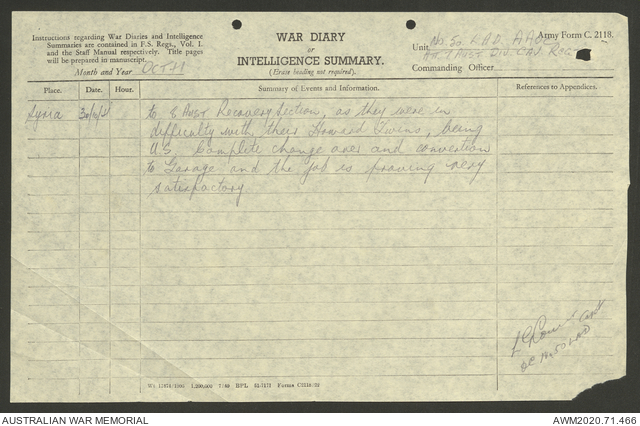 Instructions regarding War Diaries and Intelligence
Summaries are contained in F.S. Regs., Vol. I.
and the Staff Manual respectively. Title pages
will be prepared in manuscript.
Month and Year OCT 41
WAR DIARY
or
INTELLIGENCE SUMMARY.
(Erase heading not required).
Army Form C. 2118.
Unit No. 50 L.A.D. A.A.O.C.
Att AUST DIV. CAV. REGT
Commanding Officer
Place. Date. Hour. Summary of Events and Information. References to Appendices.
Syria to AUST Recovery Section, as they were in
difficulty with their Howard Twins, being
U.S. Complete change over and convertion
to Garage and the job is proving very
satisfactory
OC No 50 LAD
1,200,000 7/40 BPL 51-7171 Forms C2118/22
AUSTRALIAN WAR MEMORIAL
AWM2020.71.466